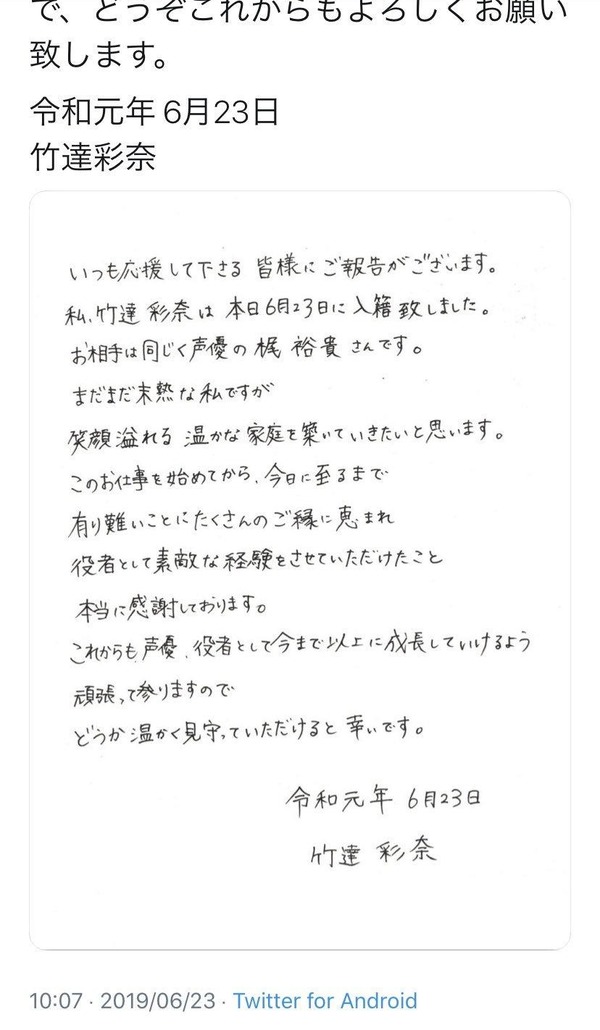 で、どうぞこれからもよろしくお願い
致します。
令和元年6月23日
竹達彩奈
いつも応援して下さる 皆様にご報告がございます。
私、竹達 彩奈は 本日6月23日に入籍致しました。
お相手は同じく声優の 梶 裕貴 さんです。
まだまだ未熟な私ですが
笑顔溢れる 温かな家庭を築いていきたいと思います。
このお仕事を始めてから、今日に至るまで
有り難いことにたくさんのご縁に恵まれ
役者として素敵な経験をさせていただけたこと
本当に感謝しております。
これからも声優、役者として今まで以上に成長していけるよう
頑張って参りますので
どうか温かく見守っていただけると 幸いです。
令和元年 6月23日
竹達 彩奈
10:07 · 2019/06/23 · Twitter for Android